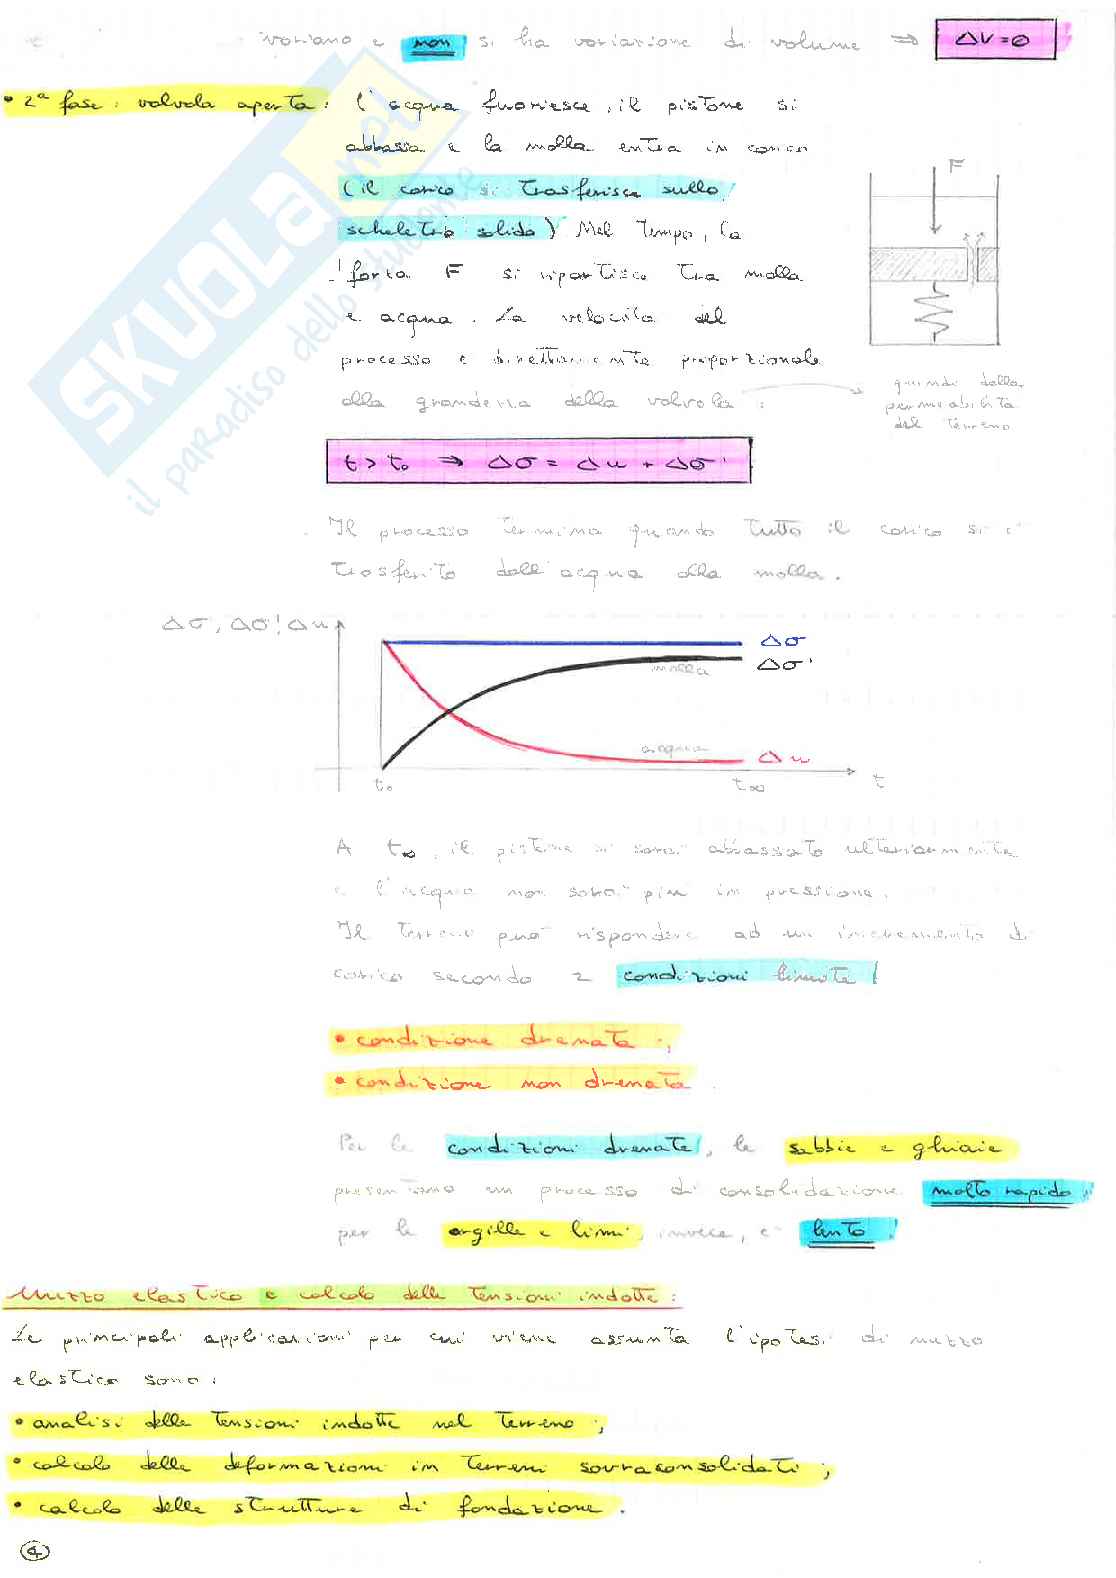 variano e non si ha variazione di volume ⇒ ΔV=0
• 2ª fase: valvola aperta: l'acqua fuoriesce, il pistone si
abbassa e la molla entra in carico
(il carico si trasferisce sullo
scheletro solido) Nel tempo, la
forza F si ripartisce tra molla
e acqua. La velocità del
processo è direttamente proporzionale
alla grandezza della valvola:
F
quindi dalla
permeabilità
del terreno
t > t₀ ⇒ Δσ = Δu + Δσ'
Il processo termina quando tutto il carico si è
trasferito dall'acqua alla molla.
Δσ, Δσ', Δu
Δσ
Δσ'
molla
acqua
Δu
t₀
t∞
t
A t∞, il pistone si sarà abbassato ulteriormente
e l'acqua non sarà più in pressione.
Il terreno può rispondere ad un incremento di
carico secondo 2 condizioni limite:
• condizione drenata;
• condizione non drenata.
Per le condizioni drenate, le sabbie e ghiaie
presentano un processo di consolidazione molto rapido;
per le argille e limi, invece, è lento.
Mezzo elastico e calcolo delle tensioni indotte:
Le principali applicazioni per cui viene assunta l'ipotesi di mezzo
elastico sono:
• analisi delle tensioni indotte nel terreno;
• calcolo delle deformazioni in terreni sovraconsolidati;
• calcolo delle strutture di fondazione.
4
SKUOLA.net
il paradiso dello studente